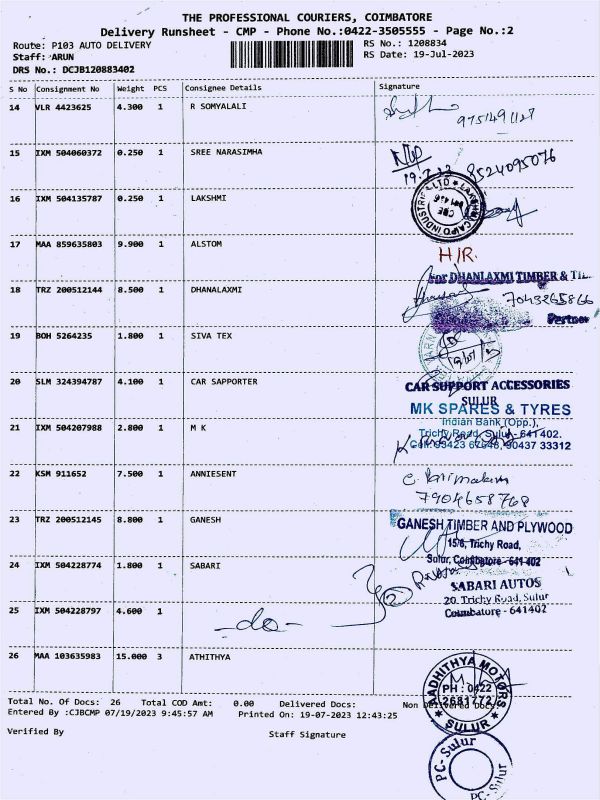 THE PROFESSIONAL COURIERS, COIMBATORE
Delivery Runsheet - CMP - Phone No.:0422-3505555 - Page No.:2
Route: P103 AUTO DELIVERY
Staff: ARUN
DRS No.: DCJB120883402
RS No.: 1208834
RS Date: 19-Jul-2023
S No Consignment No Weight PCS Consignee Details Signature
14 VLR 4423625 4.300 1 R SOMYALALI
9751491127
15 IXM 504060372 0.250 1 SREE NARASIMHA
8524095076
16 IXM 504135787 0.250 1 LAKSHMI
17 MAA 859635803 9.900 1 ALSTOM
H/R.
For DHANLAXMI TIMBER &
18 TRZ 200512144 8.500 1 DHANALAXMI
7043265866
Partner
19 BOH 5264235 1.800 1 SIVA TEX
20 SLM 324394787 4.100 1 CAR SAPPORTER
CAR SUPPORT ACCESSORIES
SULUR
MK SPARES & TYRES
Indian Bank (Opp.),
21 IXM 504207988 2.800 1 M K
Trichy Road, Sulur-641402.
90437 33312
22 KSM 911652 7.500 1 ANNIESENT
7904658768
23 TRZ 200512145 8.800 1 GANESH
GANESH TIMBER AND PLYWOOD
15/6, Trichy Road,
Sulur, Coimbatore-641 402
24 IXM 504228774 1.800 1 SABARI
SABARI AUTOS
20, Trichy Road, Sulur
Coimbatore - 641402
25 IXM 504228797 4.600 1
-do-
26 MAA 103635983 15.000 3 ATHITHYA
AADHITHYA MOTORS
PH : 0422
2681772
SULUR
Total No. Of Docs: 26 Total COD Amt: 0.00 Delivered Docs: Non Delivered Docs:
Entered By :CJBCMP 07/19/2023 9:45:57 AM Printed On: 19-07-2023 12:43:25
Verified By Staff Signature
PC-Sulur
PC-Sulur